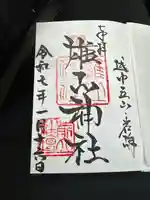 越中立山
奉拝
雄山神社
令和七年一月十六日